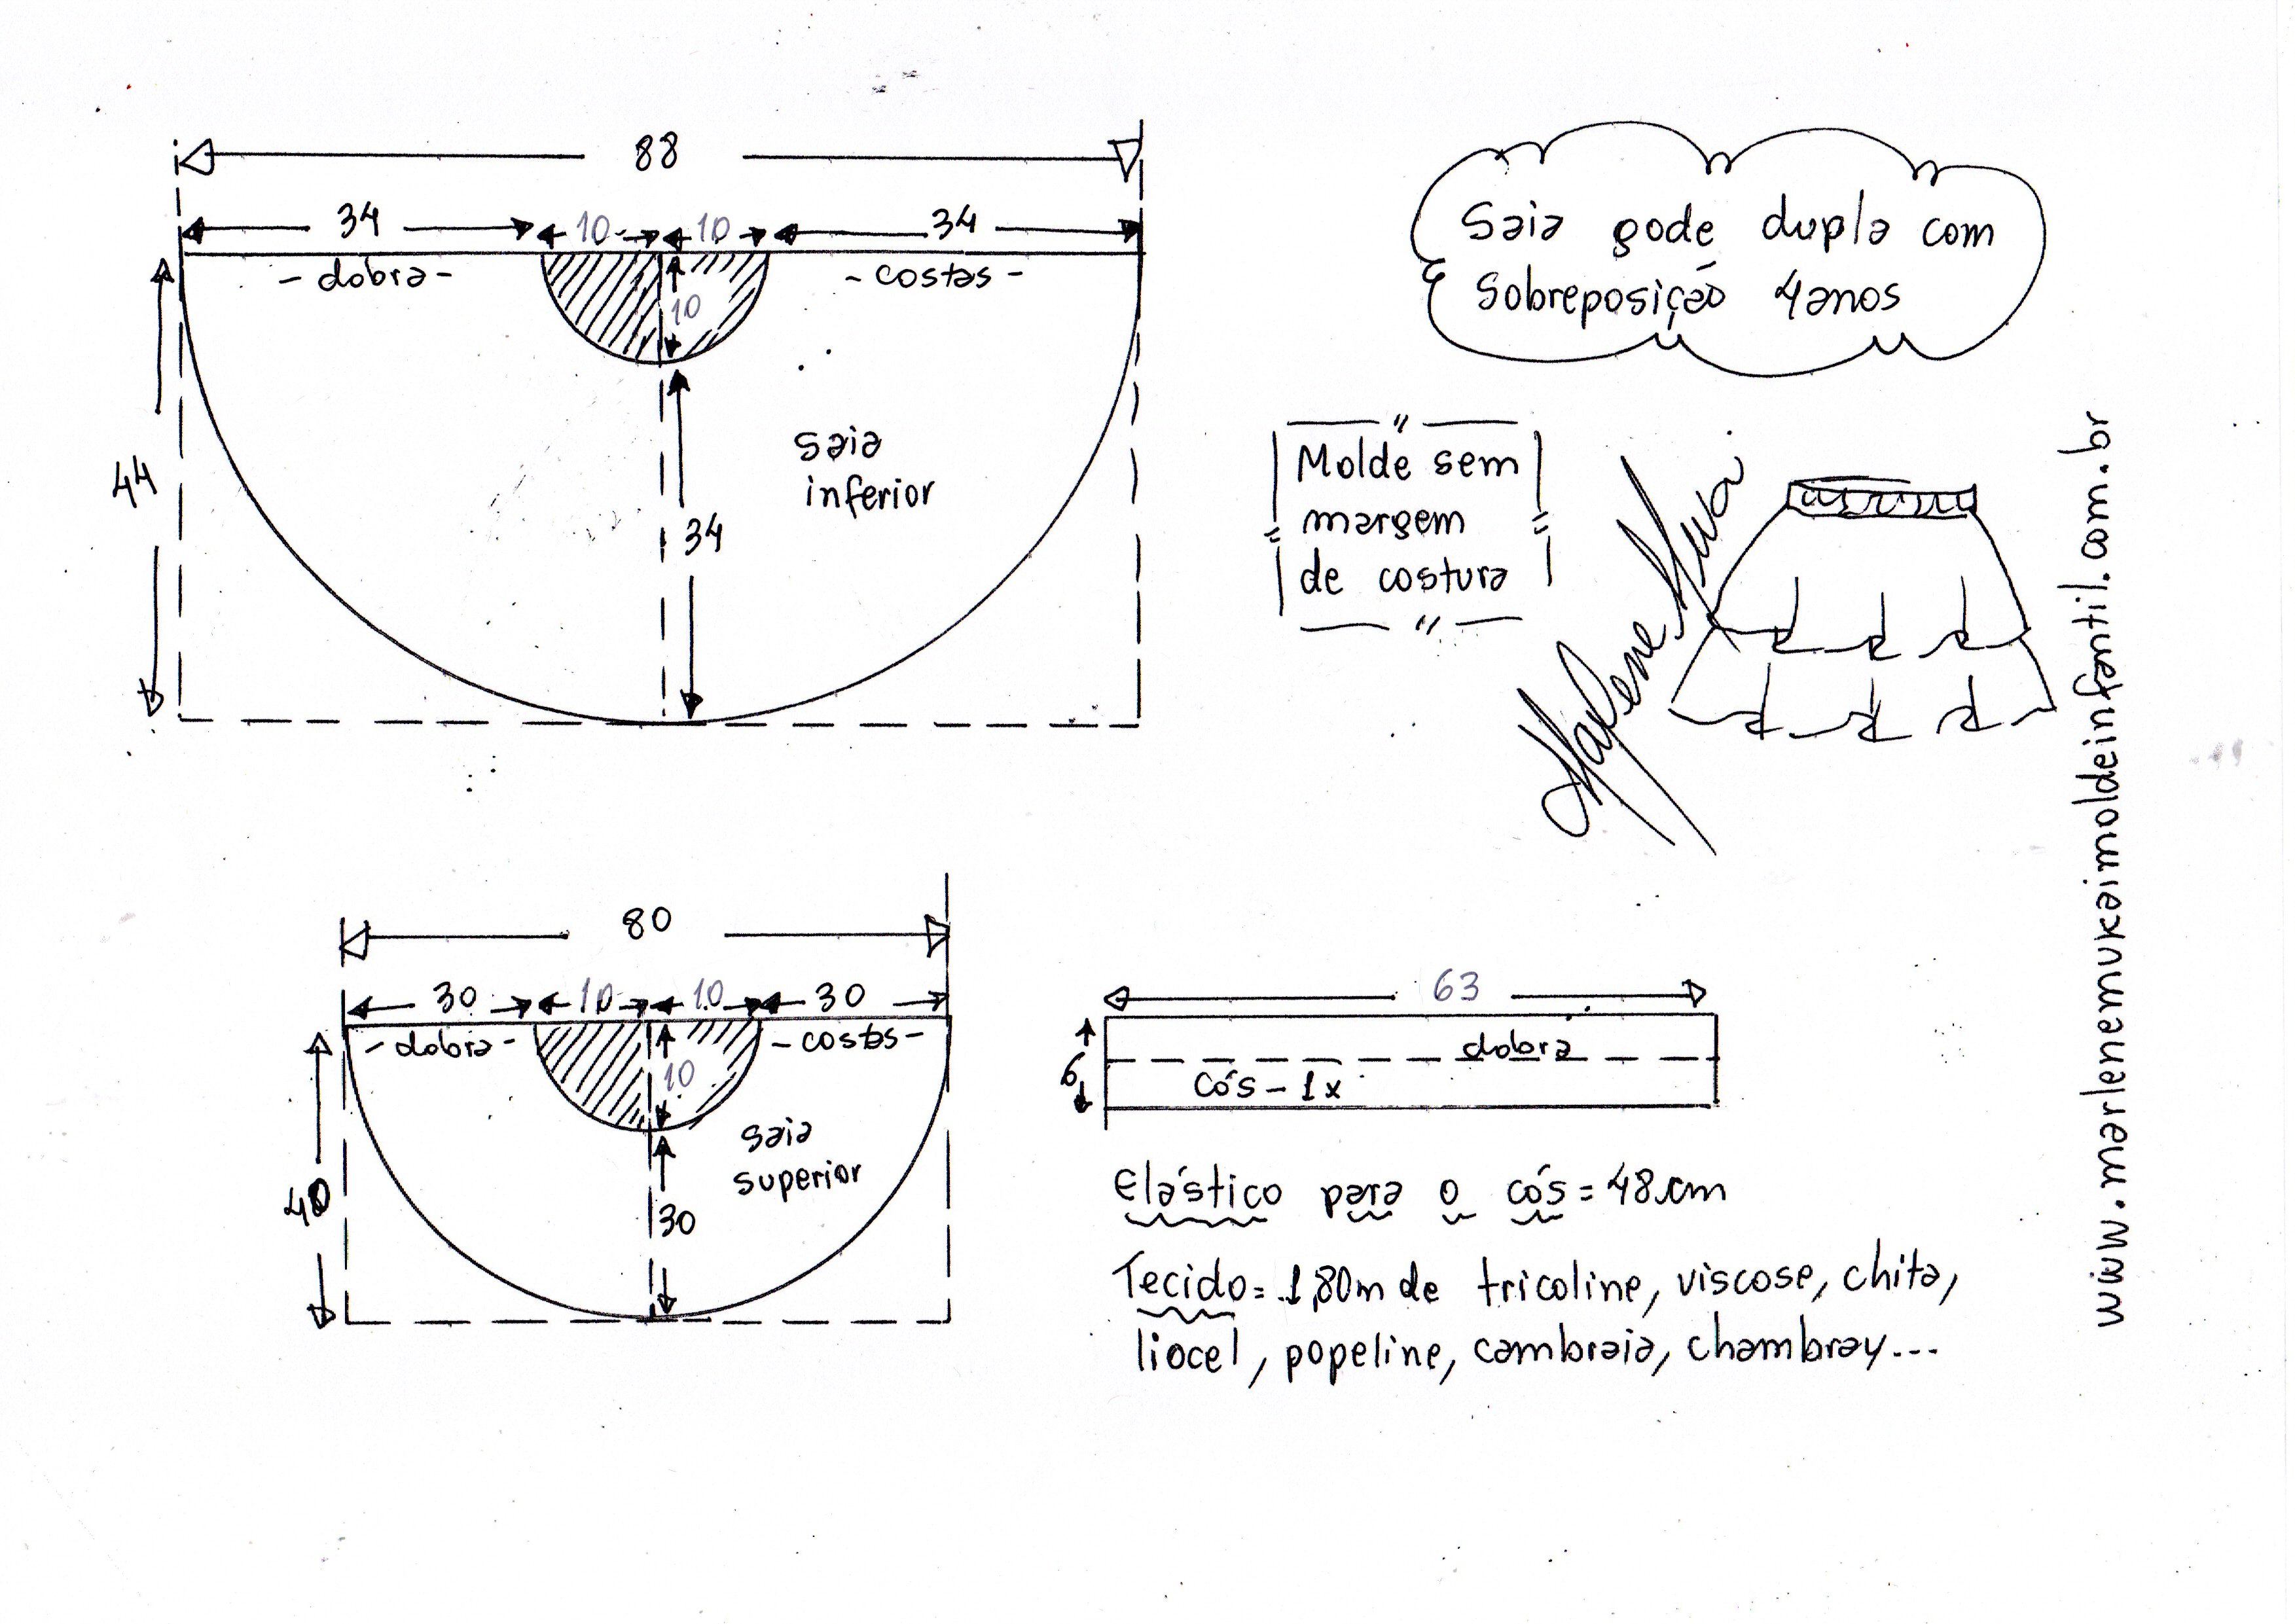 88
34
10
10
34
- dobra -
- costas -
10
44
saia
inferior
34
Saia gode dupla com
Sobreposição 4anos
Molde sem
margem
de costura
Marlene Mukai
www.marlenemukaimoldeinfantil.com.br
80
30
10
10
30
- dobra -
- costas -
10
40
saia
superior
30
63
6
dobra
Cós - 1x
Elástico para o cós = 48cm
Tecido = 1,80m de tricoline, viscose, chita,
liocel, popeline, cambraia, chambray...